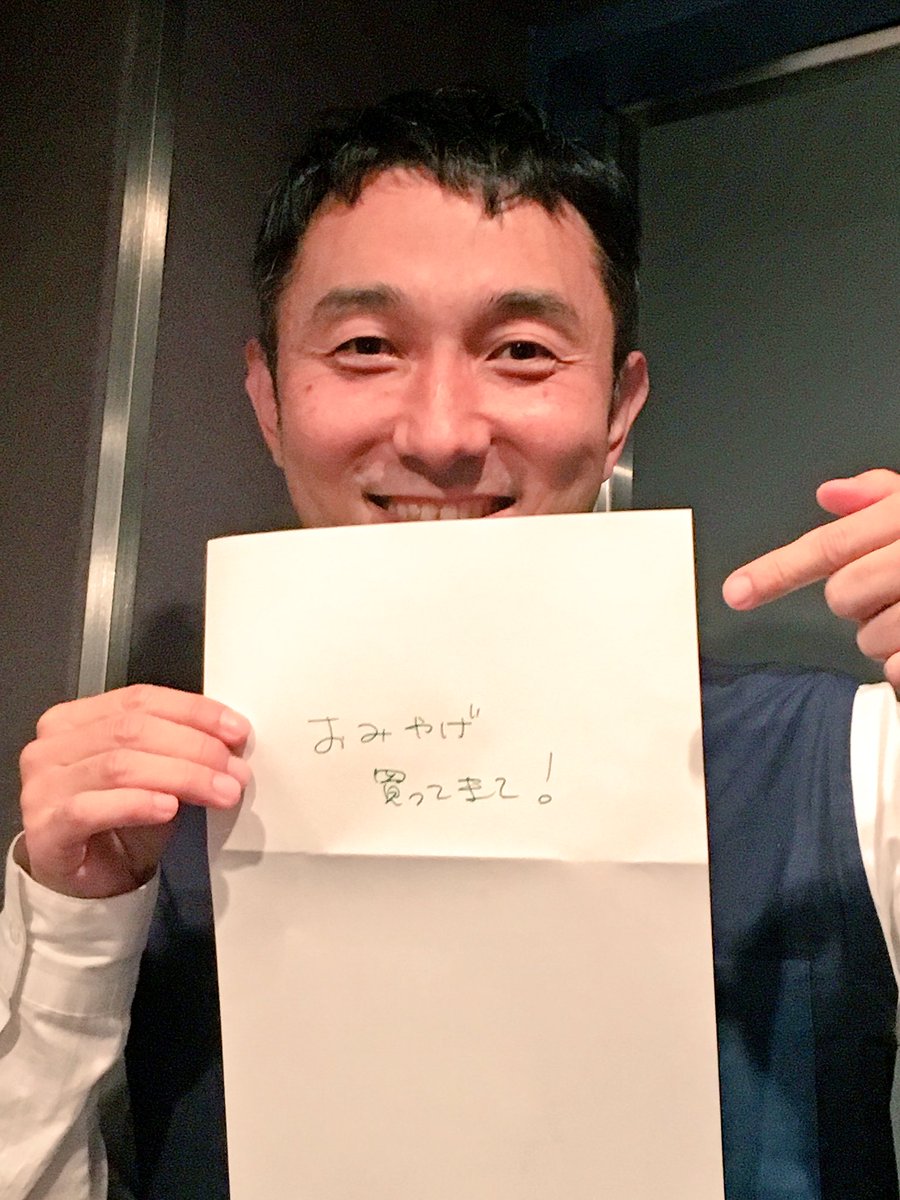 おみやげ
買ってきて!